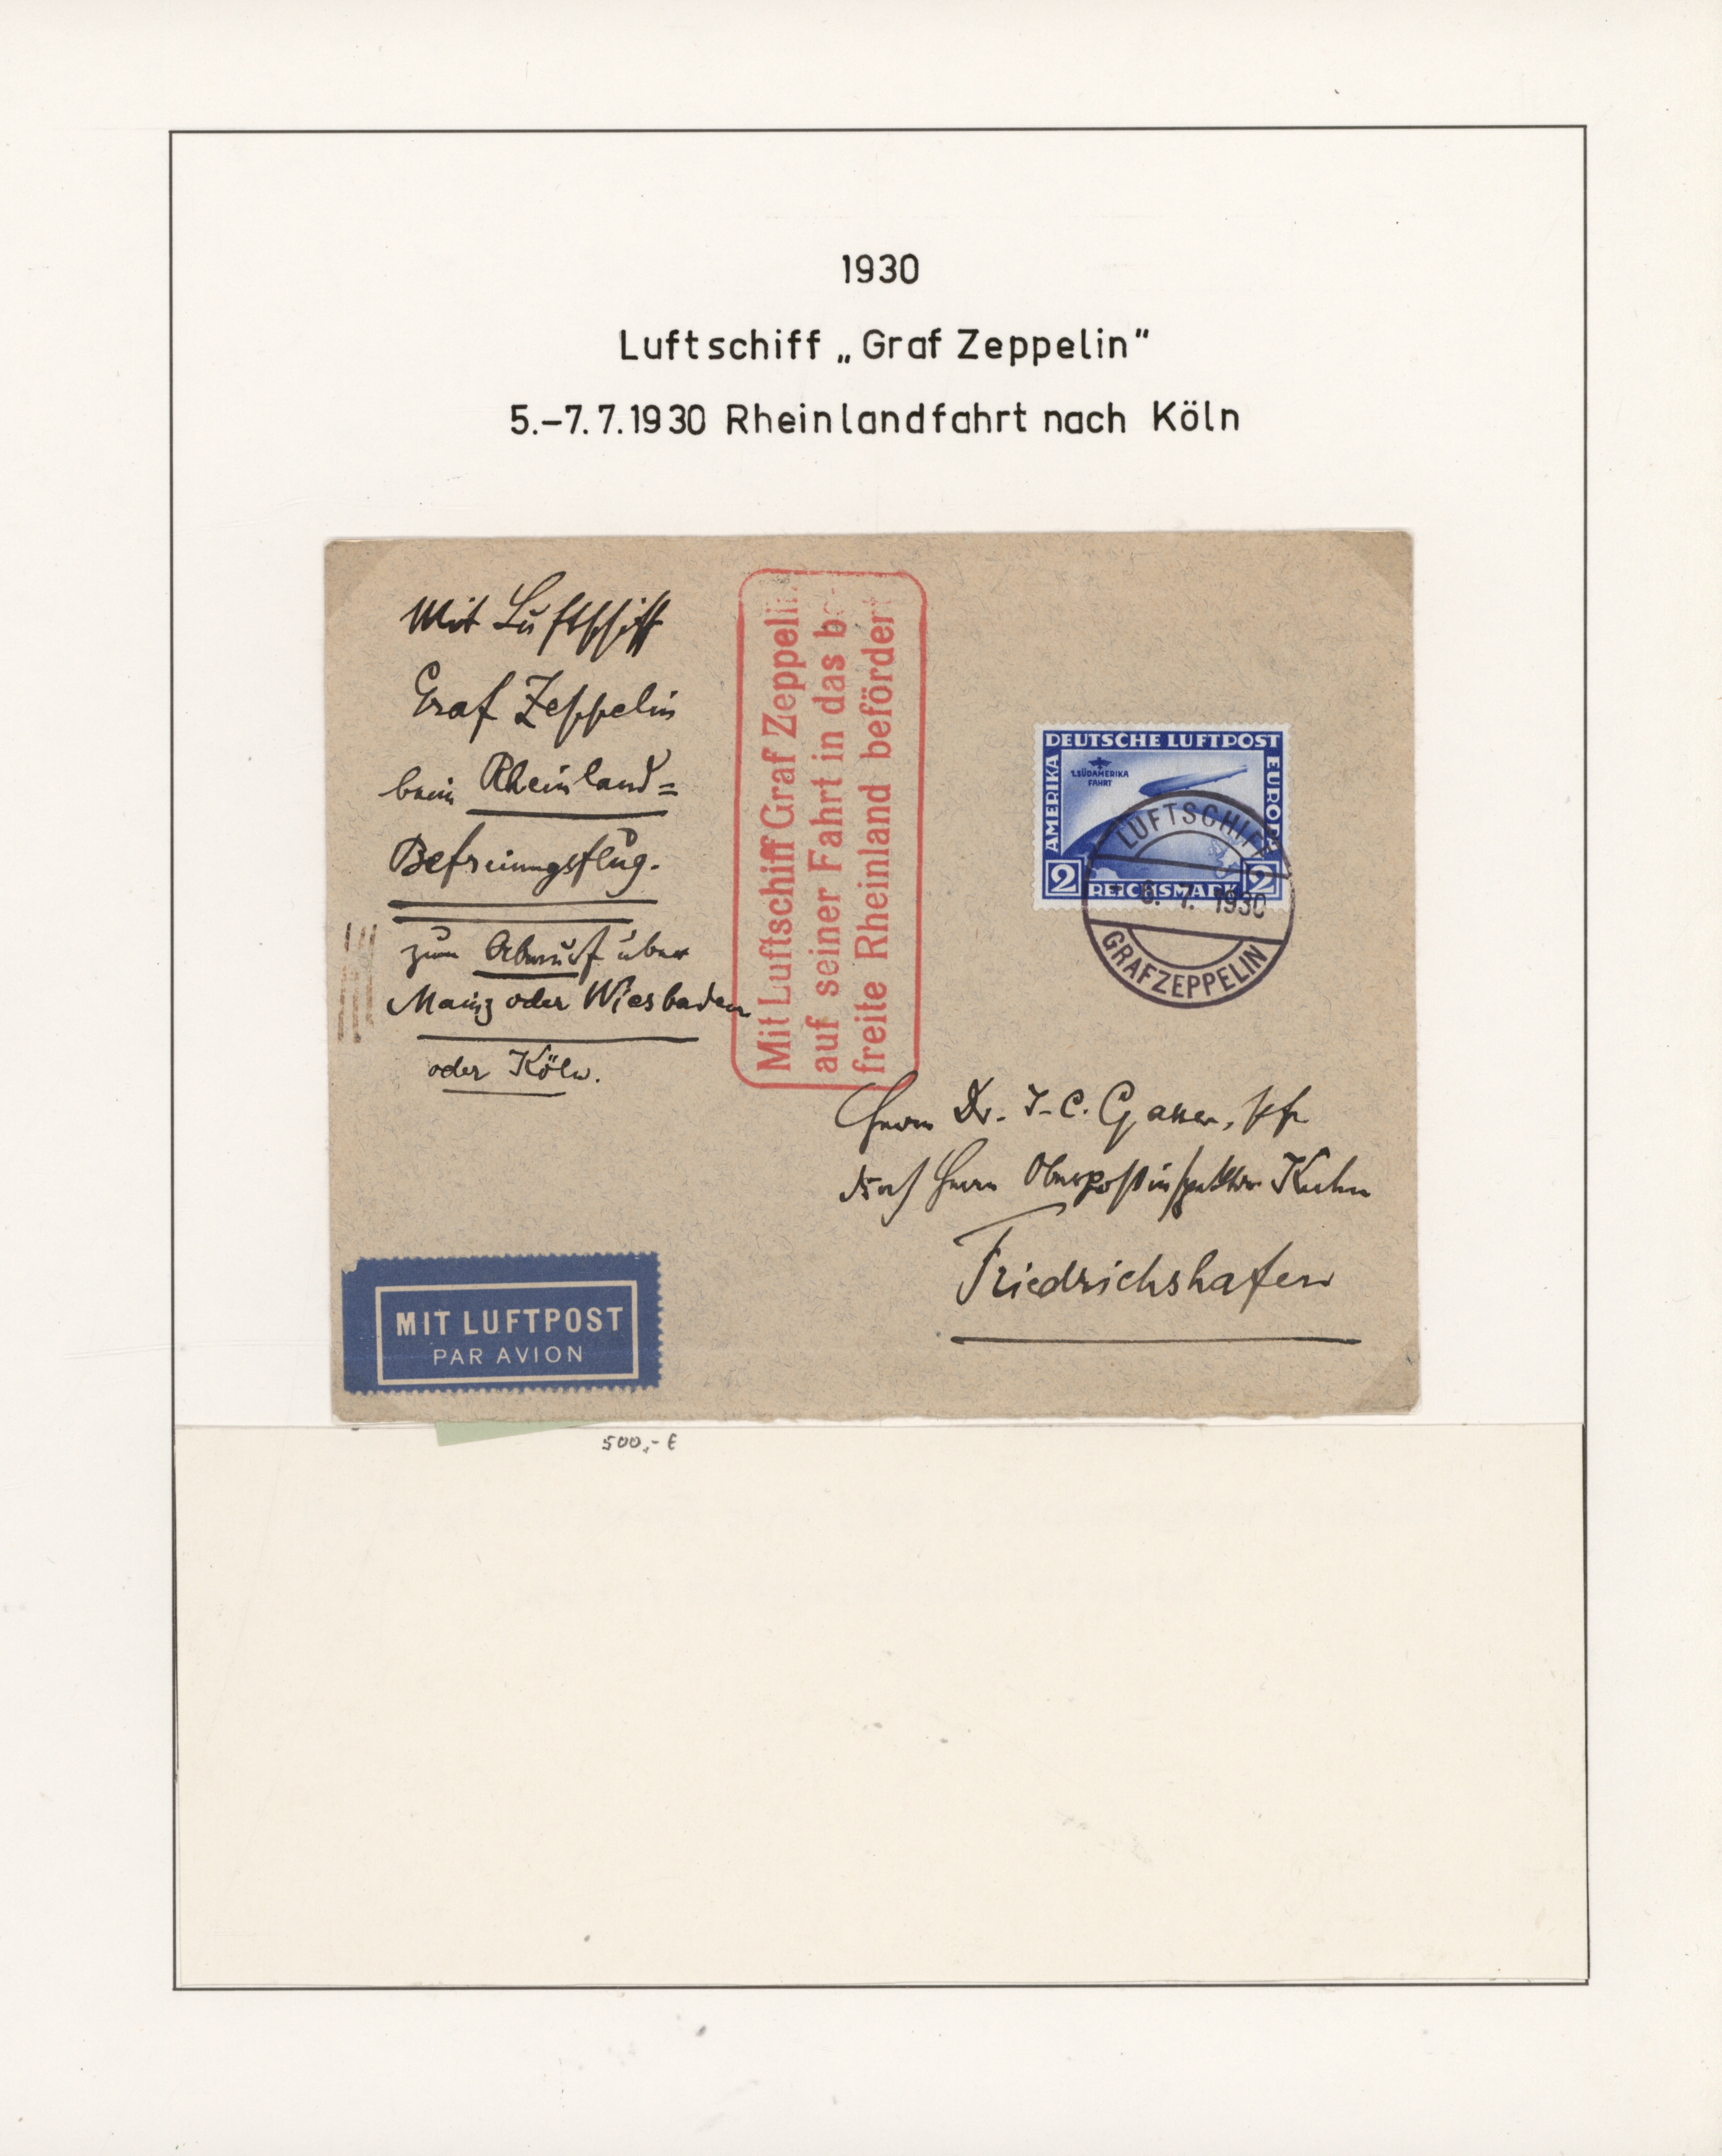 1930
Luftschiff „Graf Zeppelin"
5.–7.7.1930 Rheinlandfahrt nach Köln
Mit Luftschiff
Graf Zeppelin
beim Rheinland=
Befreiungsflug.
zum Abwurf über
Mainz oder Wiesbaden
oder Köln.
Mit Luftschiff Graf Zeppelin
auf seiner Fahrt in das be
freite Rheinland befördert
DEUTSCHE LUFTPOST
AMERIKA
EUROPA
1.SÜDAMERIKA
FAHRT
2 REICHSMARK 2
LUFTSCHIFF
6. 7. 1930
GRAF ZEPPELIN
Herrn Dr. J-C.
Herrn Oberpostinspektor Kuhn
Friedrichshafen
MIT LUFTPOST
PAR AVION
500,- €